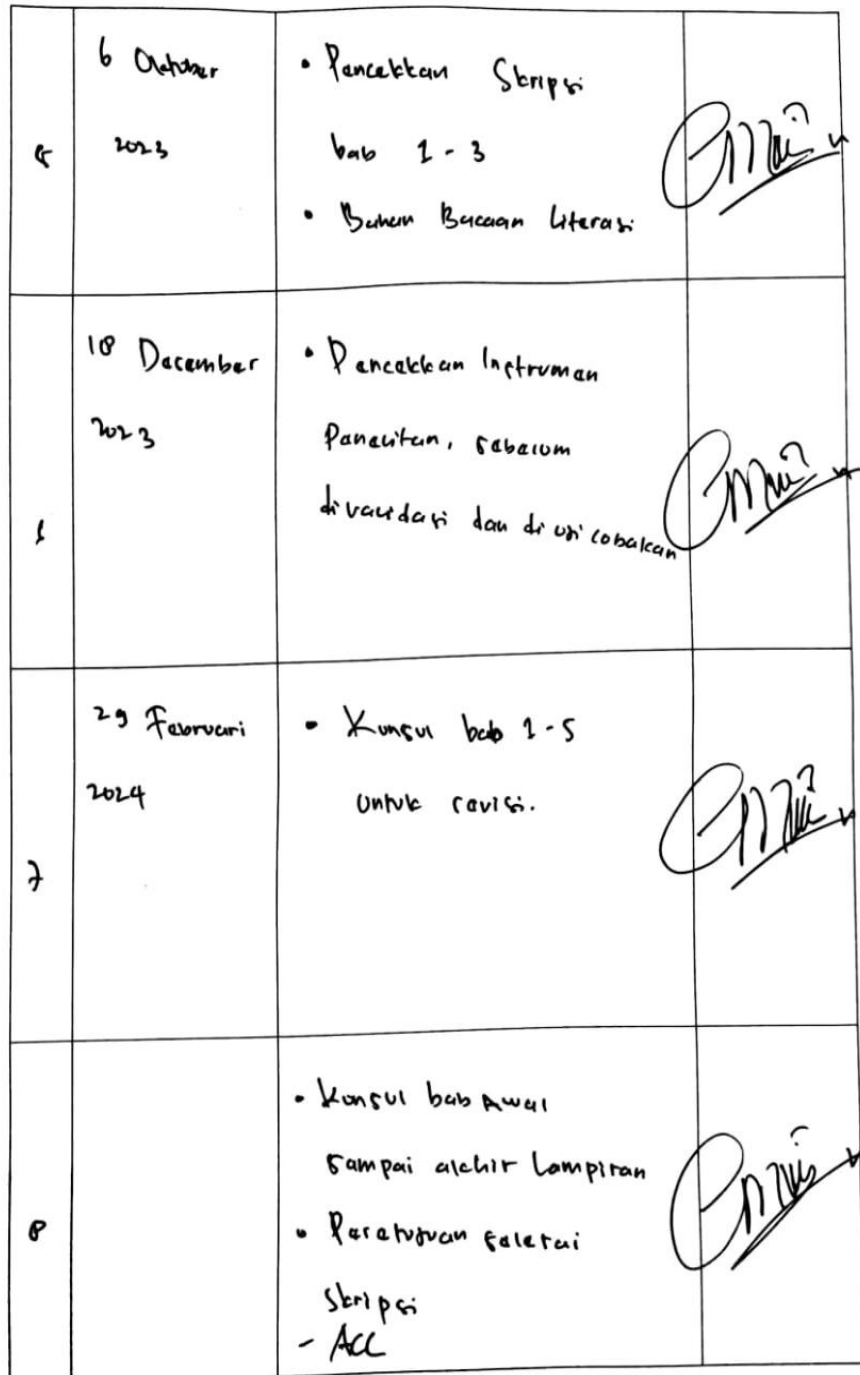 5
6 Oktober
2023
• Pencekkan Skripsi
bab 1 - 3
• Bahan Bacaan Literasi
6
18 December
2023
• Pencekkan Instrumen
Penelitan, sebelum
divalidasi dan di uji cobakan
7
29 Februari
2024
• Konsul bab 1-5
untuk revisi.
8
• Konsul bab Awal
sampai akhir Lampiran
• Persetujuan selesai
Skripsi
- ACC